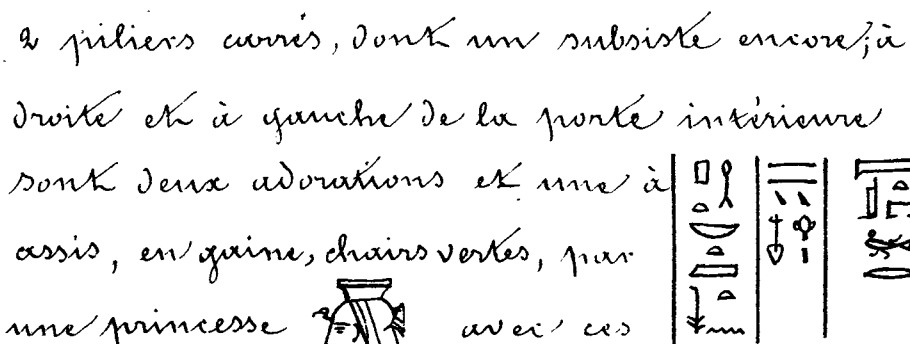 2 piliers carrés, dont un subsiste encore; à
droite et à gauche de la porte intérieure
sont deux adorations et une à
assis, en gaine, chairs vertes, par
une princesse avec ces